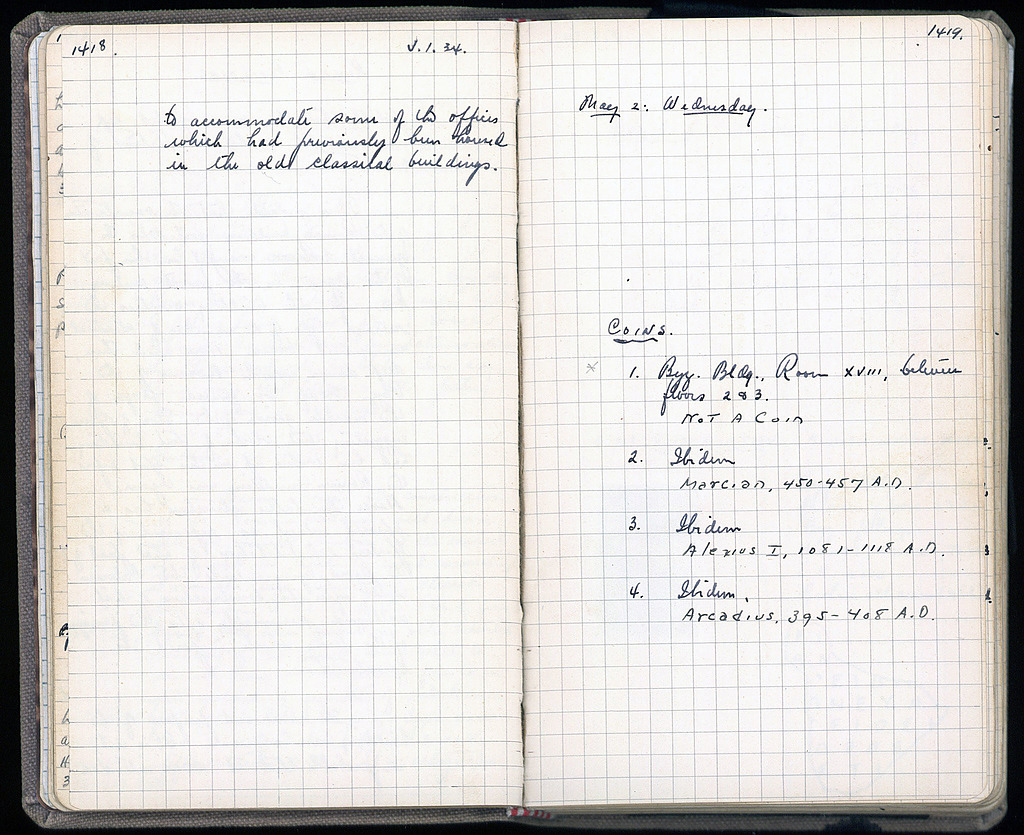 1418.
V.1.34.
to accommodate some of the offices
which had previously been housed
in the old classical buildings.
1419.
May 2: Wednesday.
Coins.
x 1. Byz. Bldg., Room XVIII, between
floors 2 & 3.
Not A Coin
2. Ibidem
Marcian, 450-457 A.D.
3. Ibidem
Alexius I, 1081-1118 A.D.
4. Ibidem.
Arcadius, 395-408 A.D.